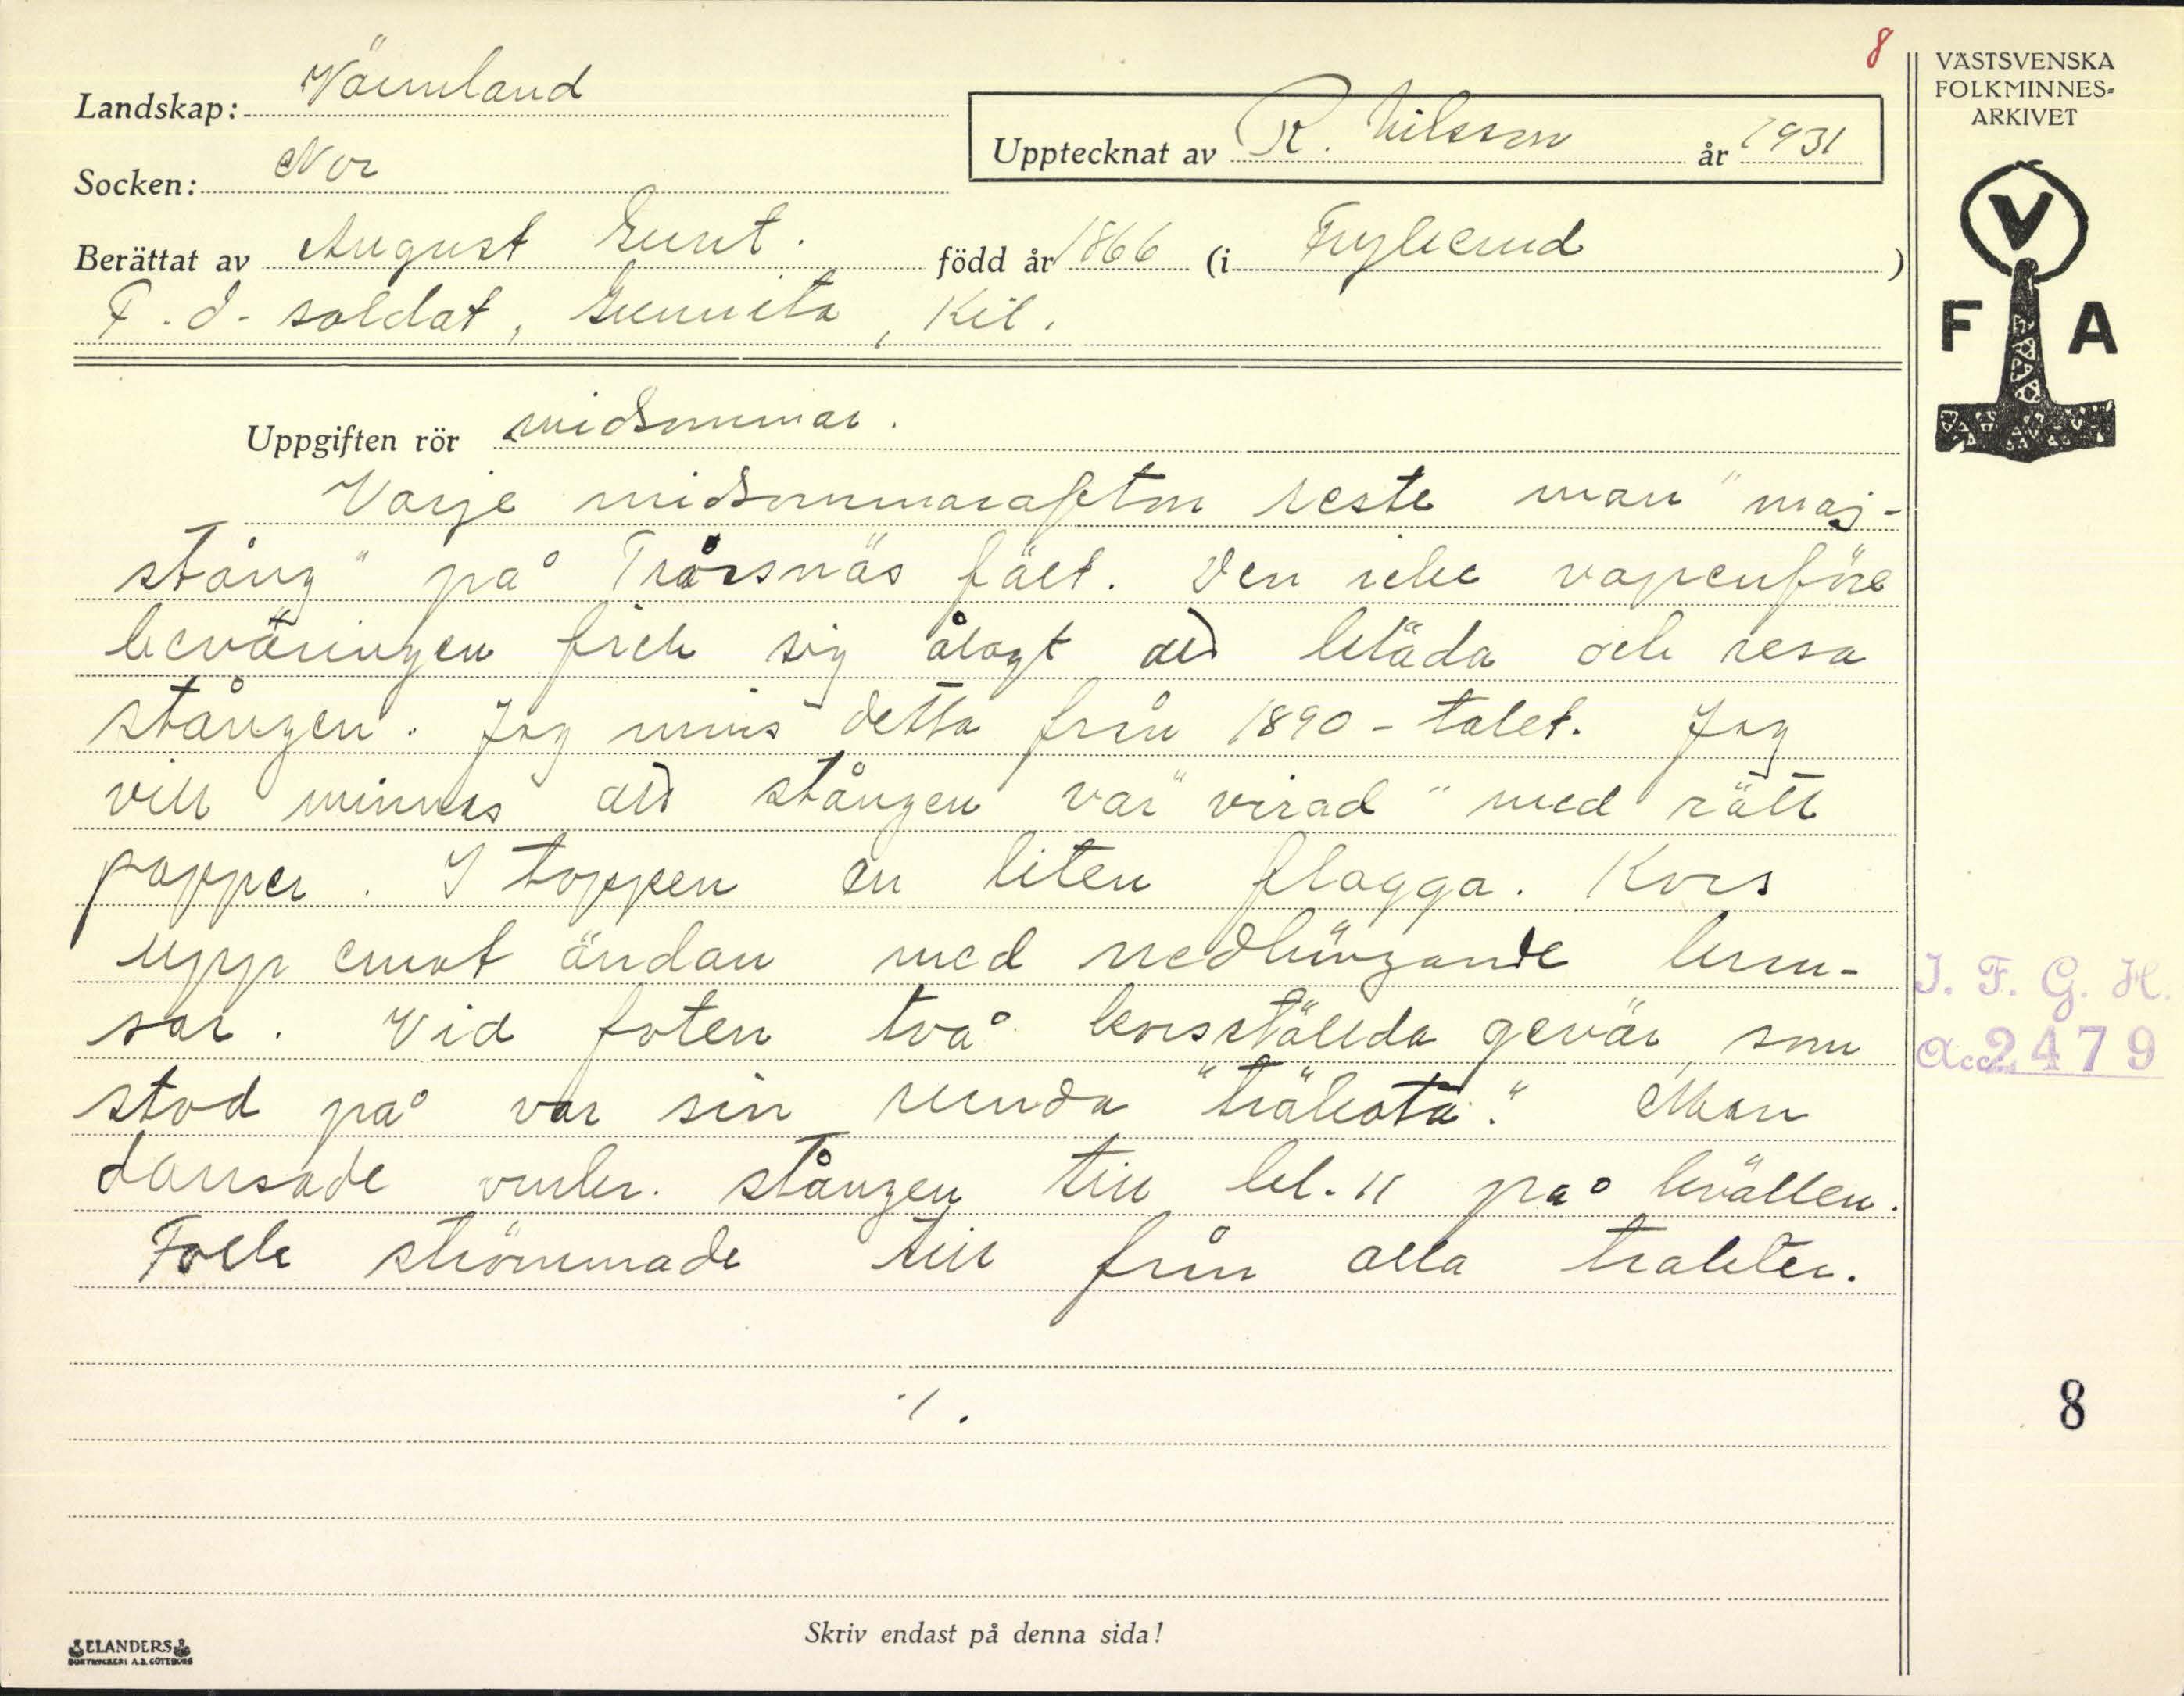 8
VÄSTSVENSKA
FOLKMINNES-
ARKIVET
Landskap: Värmland
Upptecknat av R. Nilsson år 1931
Socken: Nor
Berättat av August Gunt. född år 1866 (i Frykerud)
F.d. soldat, Gunnita, Kil.
V
F A
Uppgiften rör midsommar.
Varje midsommarafton reste man "maj-
stång" på Trårsnäs fält. Den icke vapenföre
beväringen fick sig ålagt att kläda och resa
stången. Jag mins detta från 1890-talet. Jag
vill minnas att stången var "virad" med rött
papper. I toppen en liten flagga. Kors
upp emot ändan med nedhängande kran-
sar. Vid foten två korsställda gevär, som
stod på var sin runda "träkota". Man
dansade omkr. stången till kl. 11 på kvällen.
Folk strömmade till från alla trakter.
./.
I. F. G. H.
Acc. 2479
8
Skriv endast på denna sida!
ELANDERS
BOKTRYCKERI A.B. GÖTEBORG